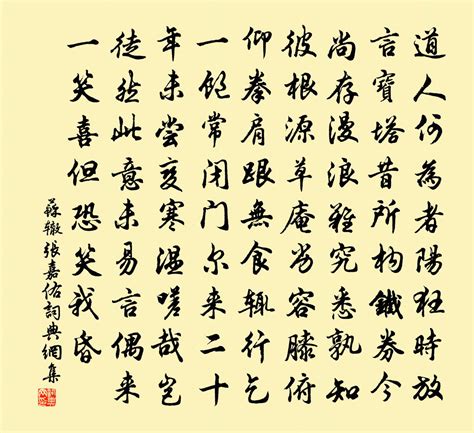 道人何為者陽狂時放
言寶塔昔所构鐵券今
尚存漫浪難究悉孰知
彼根源草庵劣容膝俯
仰拳肩跟無食輒行乞
一飽常闭门尔来二十
年未嘗變寒溫嗟哉豈
徒然此意未易言偶来
一笑喜但恐笑我昏
蘇辙張嘉佑詞典網集